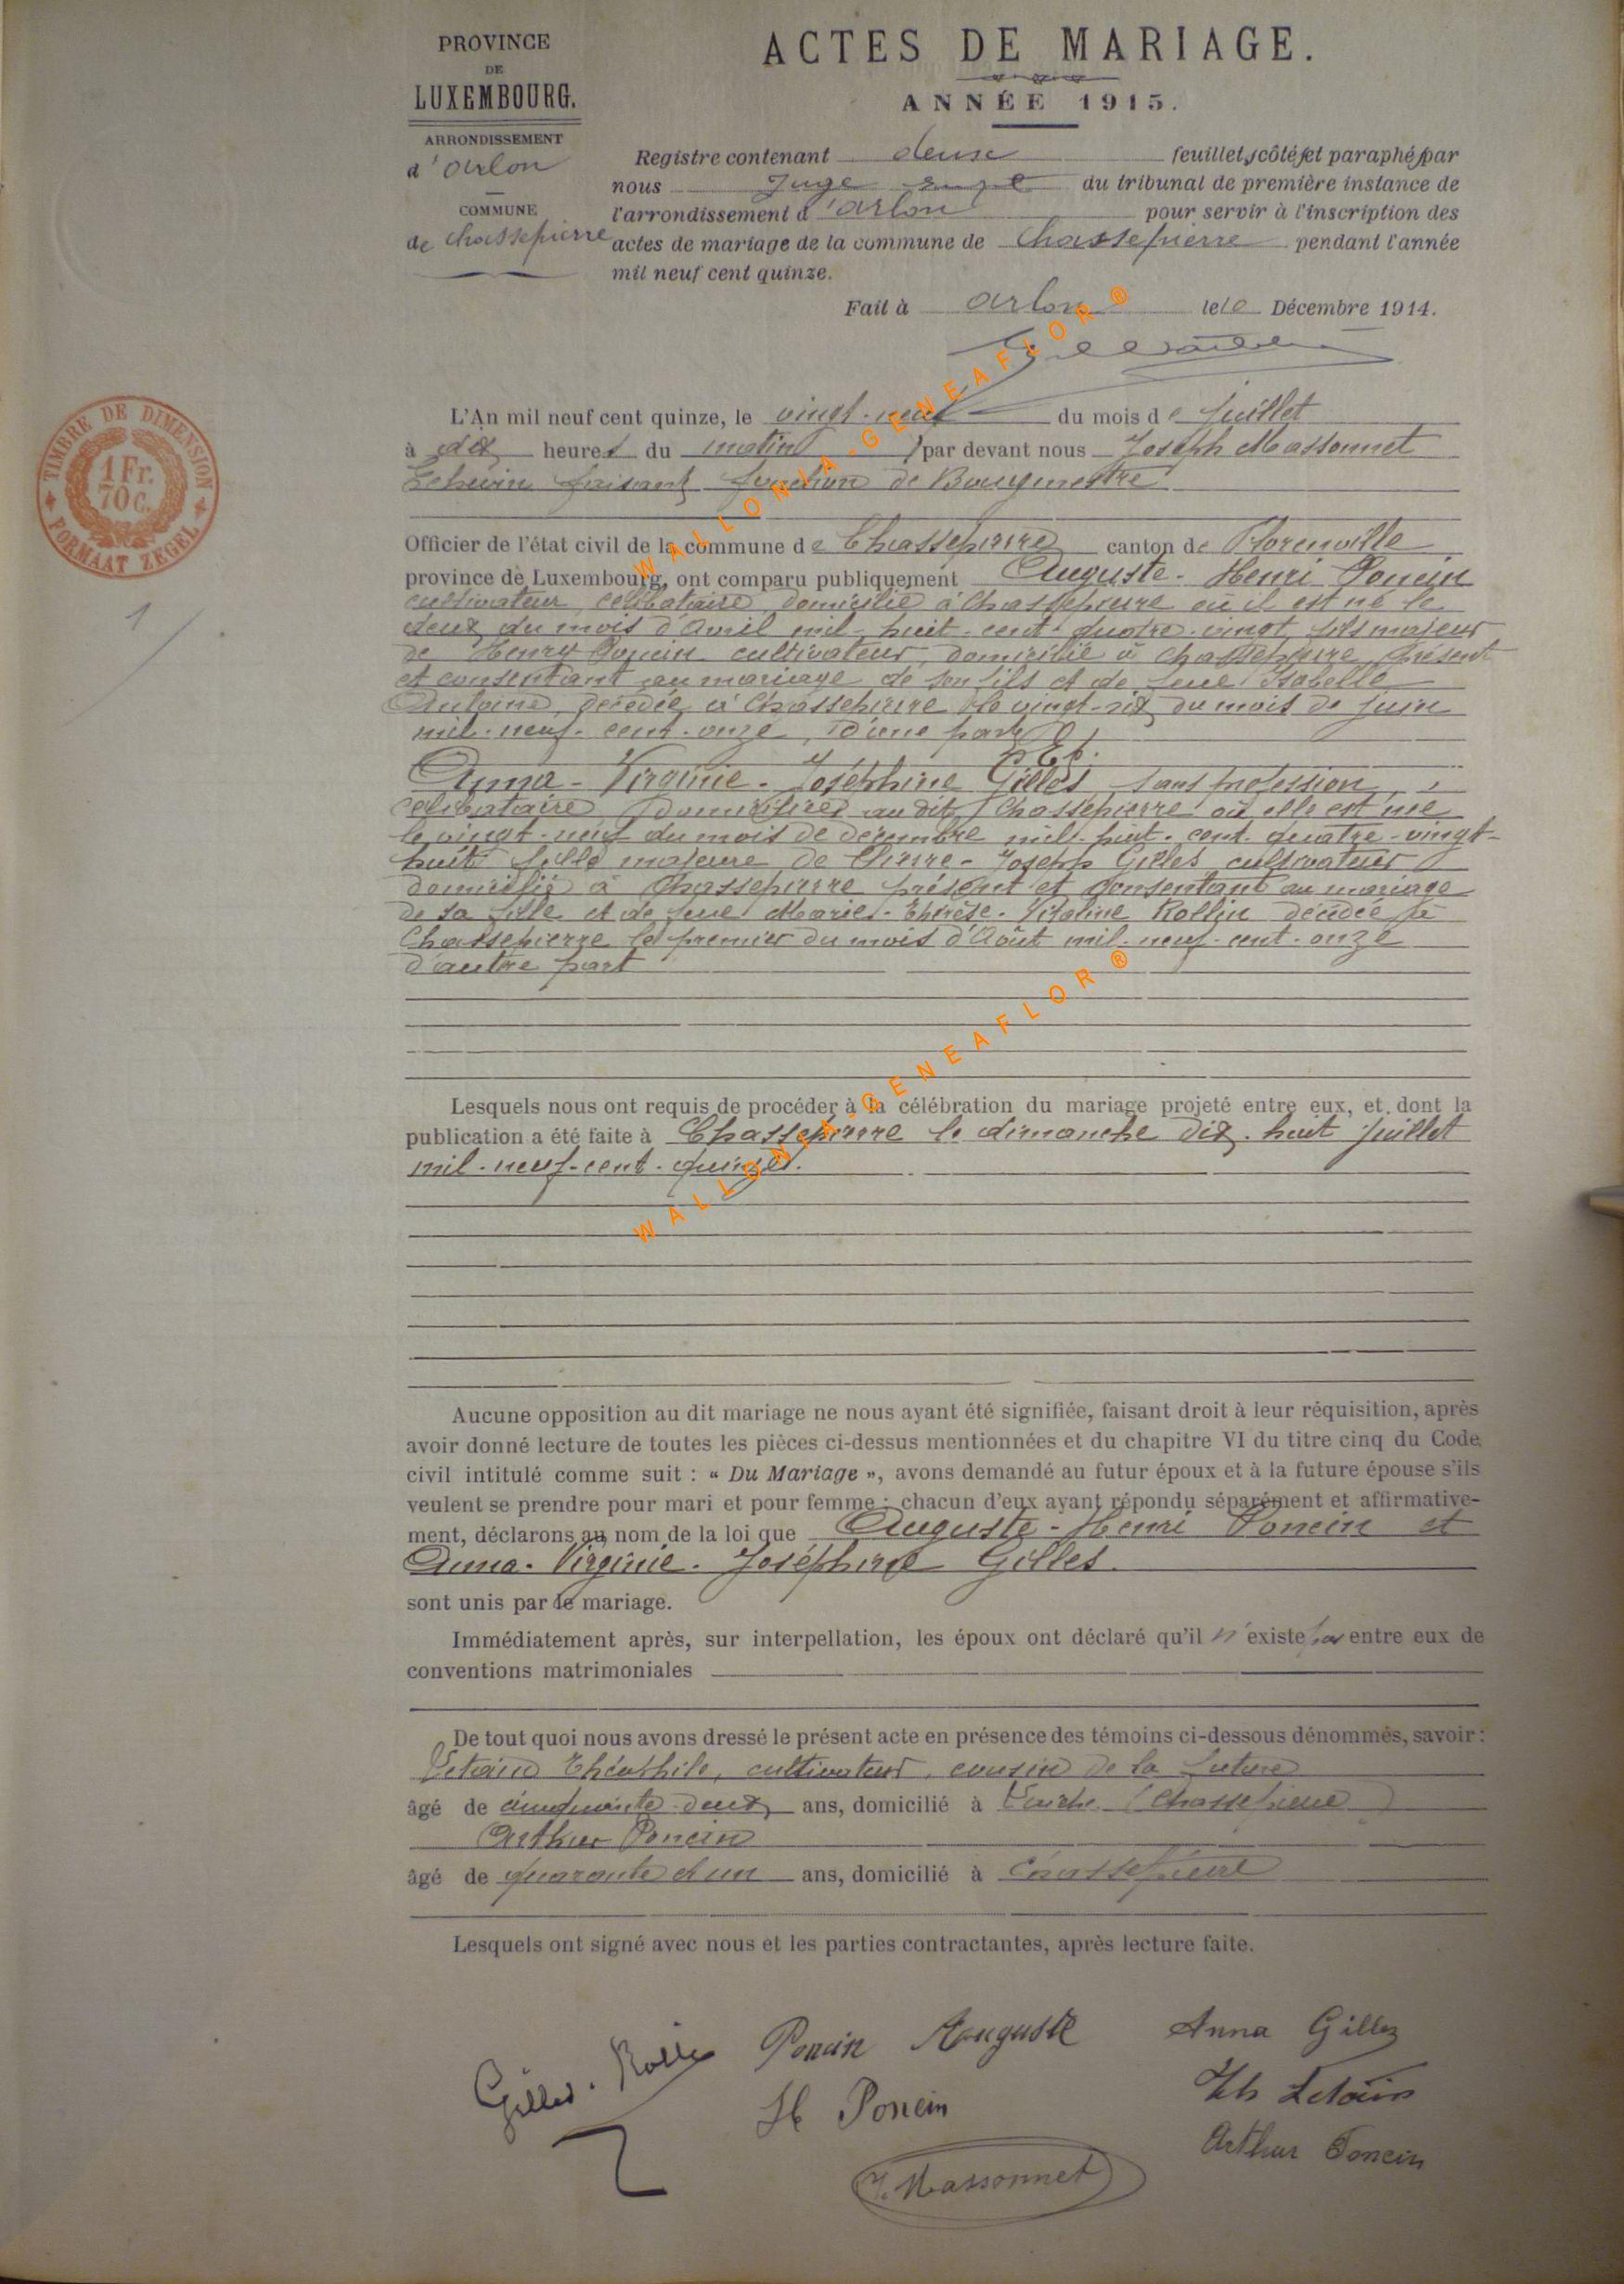 PROVINCE
DE
LUXEMBOURG.
ARRONDISSEMENT
d'Arlon
COMMUNE
de Chassepierre
ACTES DE MARIAGE.
ANNÉE 1915.
Registre contenant deux feuillets côtés et paraphés par
nous Juge du tribunal de première instance de
l'arrondissement d'Arlon pour servir à l'inscription des
actes de mariage de la commune de Chassepierre pendant l'année
mil neuf cent quinze.
Fait à Arlon le 10 Décembre 1914.
TIMBRE DE DIMENSION
1 Fr.
70 c.
FORMAAT ZEGEL
1
L'An mil neuf cent quinze, le vingt-neuf du mois de Juillet
à dix heures du matin par devant nous Joseph Massonnet
Echevin faisant fonction de Bourgmestre
Officier de l'état civil de la commune de Chassepierre canton de Florenville
province de Luxembourg, ont comparu publiquement Auguste-Henri Poncin
cultivateur, célibataire, domicilié à Chassepierre où il est né le
deux du mois d'Avril mil-huit-cent-quatre-vingt, fils majeur
de Henry Poncin cultivateur, domicilié à Chassepierre, présent
et consentant au mariage de son fils et de feue Isabelle
Antoine, décédée à Chassepierre le vingt-six du mois de juin
mil-neuf-cent-onze, d'une part
Et.
Anna-Virginie-Joséphine Gilles sans profession,
célibataire, domiciliée au dit Chassepierre où elle est née
le vingt-neuf du mois de décembre mil-huit-cent-quatre-vingt-
huit fille majeure de Pierre-Joseph Gilles cultivateur
domicilié à Chassepierre présent et consentant au mariage
de sa fille et de feue Marie-Thérèse-Vitaline Rollin décédée à
Chassepierre le premier du mois d'Août mil-neuf-cent-onze
d'autre part
Lesquels nous ont requis de procéder à la célébration du mariage projeté entre eux, et dont la
publication a été faite à Chassepierre le dimanche dix-huit Juillet
mil-neuf-cent-quinze.
Aucune opposition au dit mariage ne nous ayant été signifiée, faisant droit à leur réquisition, après
avoir donné lecture de toutes les pièces ci-dessus mentionnées et du chapitre VI du titre cinq du Code
civil intitulé comme suit : « Du Mariage », avons demandé au futur époux et à la future épouse s'ils
veulent se prendre pour mari et pour femme ; chacun d'eux ayant répondu séparément et affirmative-
ment, déclarons au nom de la loi que Auguste-Henri Poncin et
Anna-Virginie-Joséphine Gilles.
sont unis par le mariage.
Immédiatement après, sur interpellation, les époux ont déclaré qu'il n'existe pas entre eux de
conventions matrimoniales
De tout quoi nous avons dressé le présent acte en présence des témoins ci-dessous dénommés, savoir :
Théophile, cultivateur, cousin de la future
âgé de cinquante-deux ans, domicilié à (Chassepierre)
Arthur Poncin
âgé de quarante et un ans, domicilié à Chassepierre
Lesquels ont signé avec nous et les parties contractantes, après lecture faite.
Gilles-Rollin Poncin Auguste Anna Gilles
H Poncin Th
Arthur Poncin
J. Massonnet
WALLONIA-GENEAFLOR®
WALLONIA-GENEAFLOR®